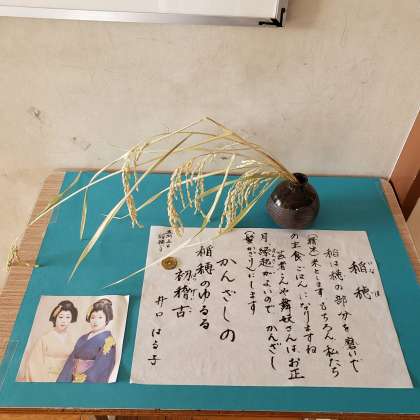 稲穂
いな ほ
稲は穂の部分を磨いで
(精米)米とします もちろん 私たち
の主食「ごはん」になりますね
芸者さんや舞妓さんは、お正
月 縁起がよいので かんざし
(髪かざり)にします
かんざしの
稲穂のゆるる
初稽古
井口 はる子